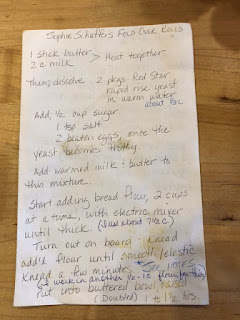 Sophie Schaffer's Fold Over Rolls
1 stick butter
2 c milk > Heat together
Then, dissolve 2 pkgs Red Star
rapid rise yeast
in warm water
about 1/3 c
Add, 1/2 cup sugar
1 tsp salt
2 beaten eggs, once the
yeast becomes frothy
Add warmed milk & butter to
this mixture.
Start adding bread flour, 2 cups
at a time, with electric mixer
until thick. (I use about 7 1/2 c)
Turn out on board & knead
add'l flour until smooth/elastic
Knead a few minutes, times
work in another 1/2 - 1 c flour
Put into buttered bowl, raise
(Doubled) 1 to 1 1/2 hrs.